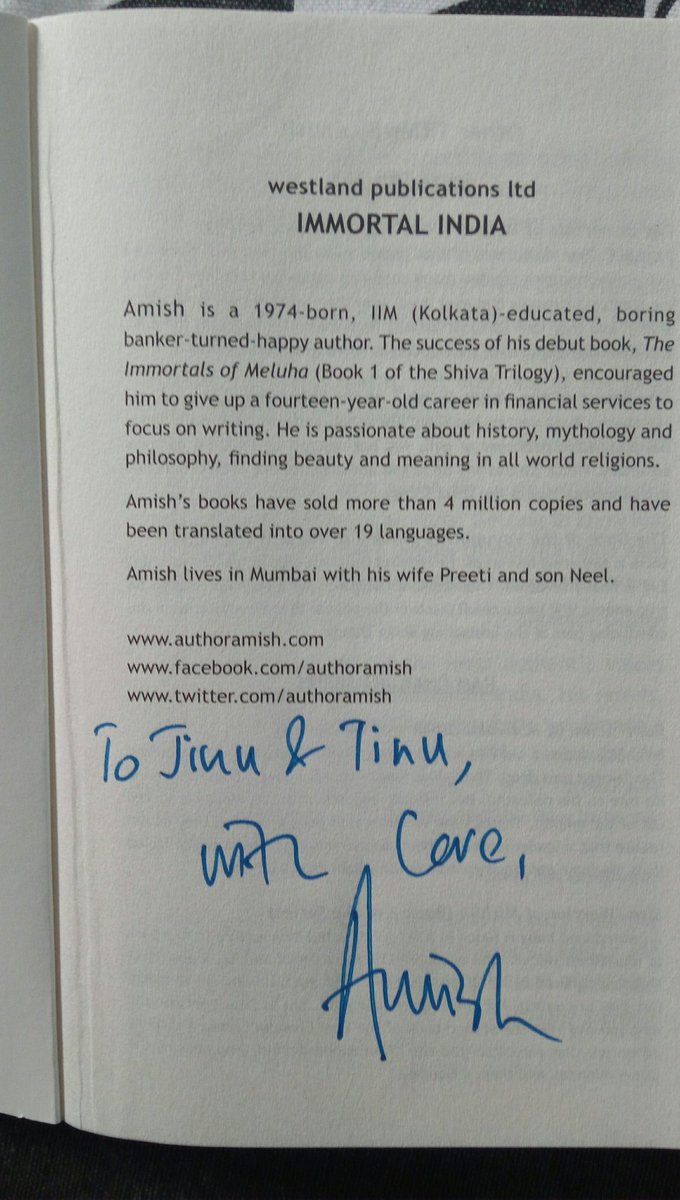 westland publications ltd
IMMORTAL INDIA
Amish is a 1974-born, IIM (Kolkata)-educated, boring
banker-turned-happy author. The success of his debut book, The
Immortals of Meluha (Book 1 of the Shiva Trilogy), encouraged
him to give up a fourteen-year-old career in financial services to
focus on writing. He is passionate about history, mythology and
philosophy, finding beauty and meaning in all world religions.
Amish's books have sold more than 4 million copies and have
been translated into over 19 languages.
Amish lives in Mumbai with his wife Preeti and son Neel.
www.authoramish.com
www.facebook.com/authoramish
www.twitter.com/authoramish
To Jinu & Tinu,
with Love,
Amish